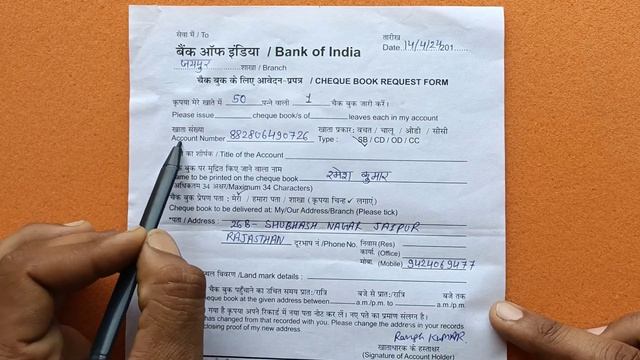 सेवा में / To
तारीख
Date 14/4/24 201......
बैंक ऑफ इंडिया / Bank of India
जयपुर शाखा / Branch
चैक बुक के लिए आवेदन-प्रपत्र / CHEQUE BOOK REQUEST FORM
कृपया मेरे खाते में 50 पन्ने वाली 1 चैक बुक जारी करें।
Please issue cheque book/s of leaves each in my account
खाता संख्या
Account Number 882806490726
खाता प्रकार: बचत / चालू / ओडी / सीसी
Type : SB / CD / OD / CC
का शीर्षक / Title of the Account
बुक पर मुद्रित किए जाने वाला नाम
me to be printed on the cheque book रमेश कुमार
अधिकतम 34 अक्षर/Maximum 34 Characters)
चैक बुक प्रेषण पता : मेरी / हमारा पता / शाखा (कृपया चिन्ह ✓ लगाएं)
Cheque book to be delivered at: My/Our Address/Branch (Please tick)
*पता / Address : 26B- SHUBHASH NAGAR JAIPUR
RAJASTHAN दूरभाष नं /Phone No. निवास (Res)
कार्या. (Office)
मोबा. (Mobile) 9424069477
स्थल विवरण /Land mark details :
चैक बुक पहुँचाने का उचित समय प्रातः/रात्रि बजे से प्रातः/रात्रि बजे तक
heque book at the given address between a.m./p.m. to a.m./p.m.
गया है कृपया अपने रिकार्ड में नया पता नोट कर लें। नए पते का प्रमाण संलग्न है।
has changed from that recorded with you. Please change the address in your records
closing proof of my new address.
Ramesh KUMAR
खाताधारक के हस्ताक्षर
(Signature of Account Holder)